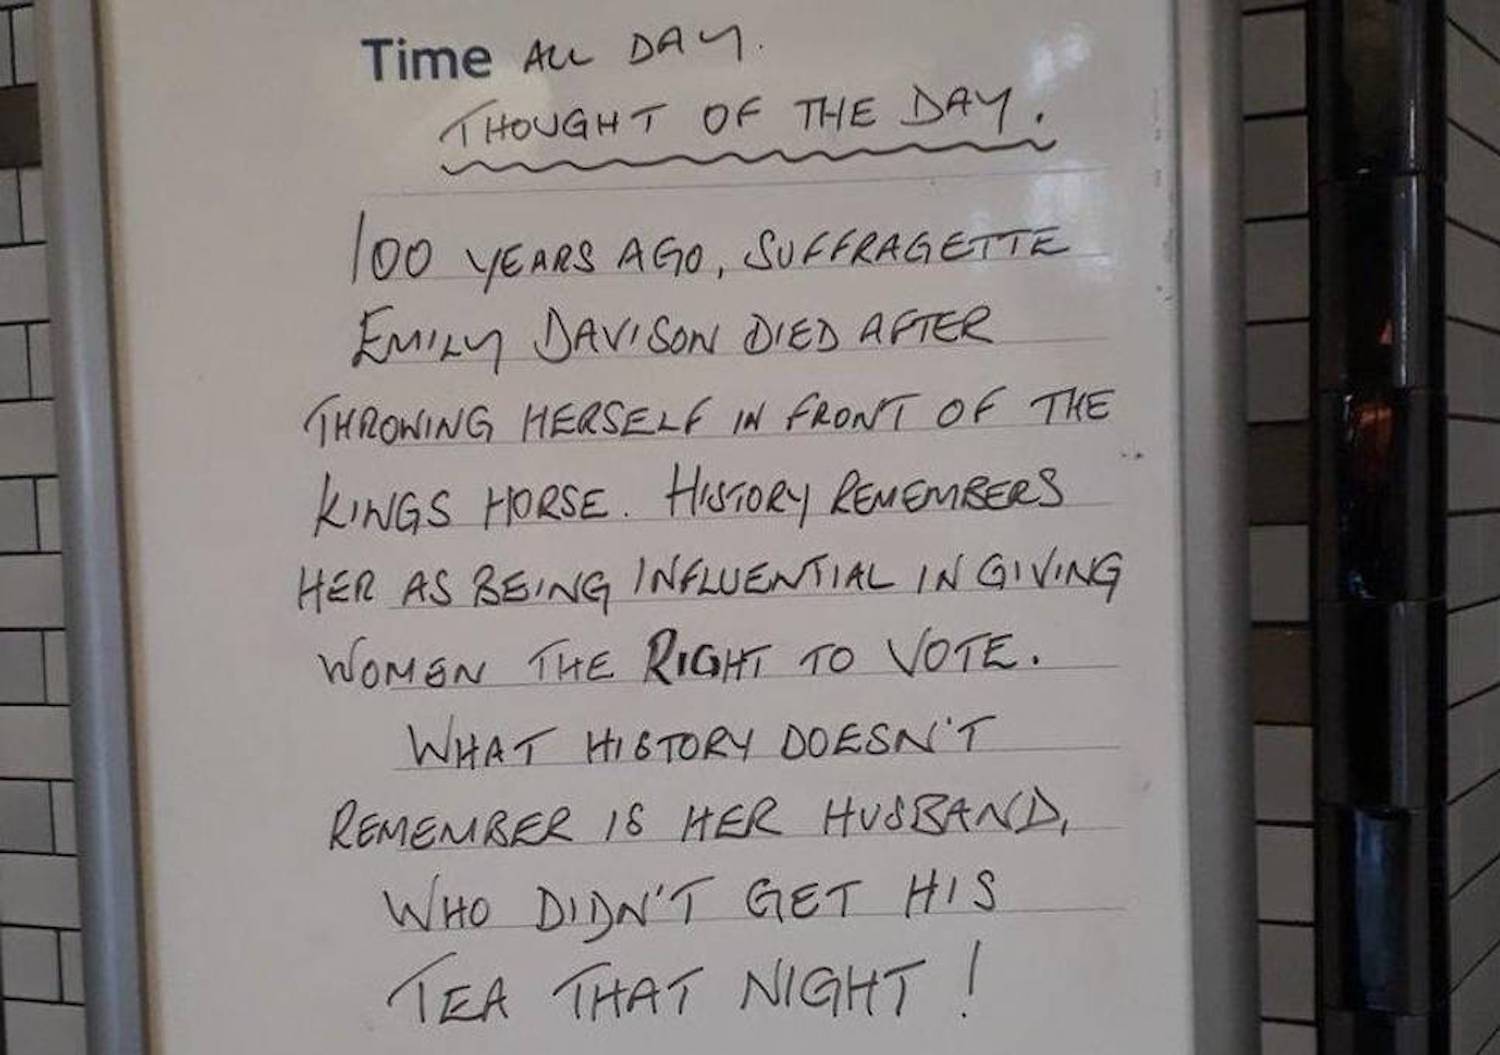 Time ALL DAY.
THOUGHT OF THE DAY.
100 YEARS AGO, SUFFRAGETTE
EMILY DAVISON DIED AFTER
THROWING HERSELF IN FRONT OF THE
KINGS HORSE. HISTORY REMEMBERS
HER AS BEING INFLUENTIAL IN GIVING
WOMEN THE RIGHT TO VOTE.
WHAT HISTORY DOESN'T
REMEMBER IS HER HUSBAND,
WHO DIDN'T GET HIS
TEA THAT NIGHT!